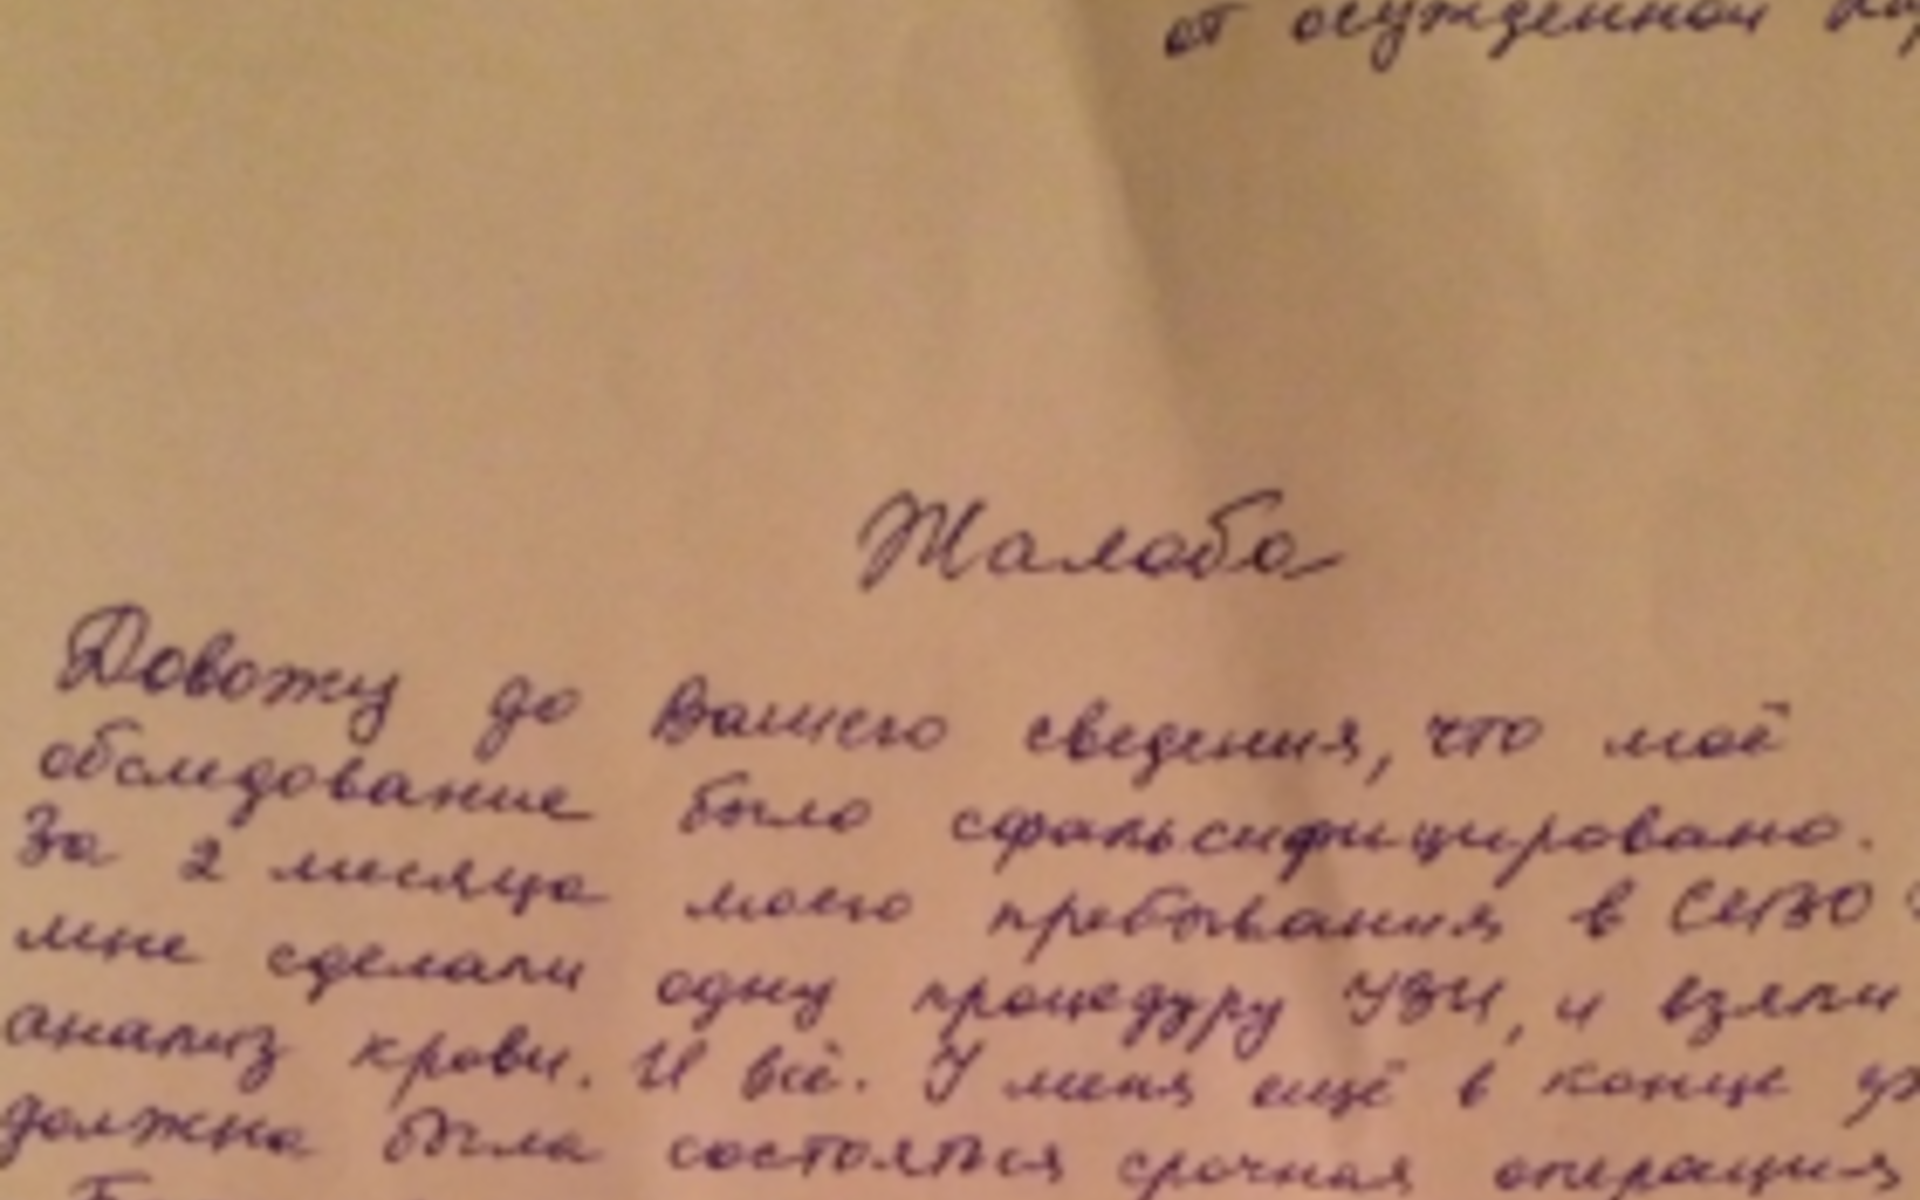 от осужденной
Жалоба
Довожу до Вашего сведения, что моё
обследование было сфальсифицировано.
За 2 месяца моего пребывания в СИЗО
мне сделали одну процедуру УЗИ, и взяли
анализ крови. И всё. У меня ещё в конце
должна была состояться срочная операция